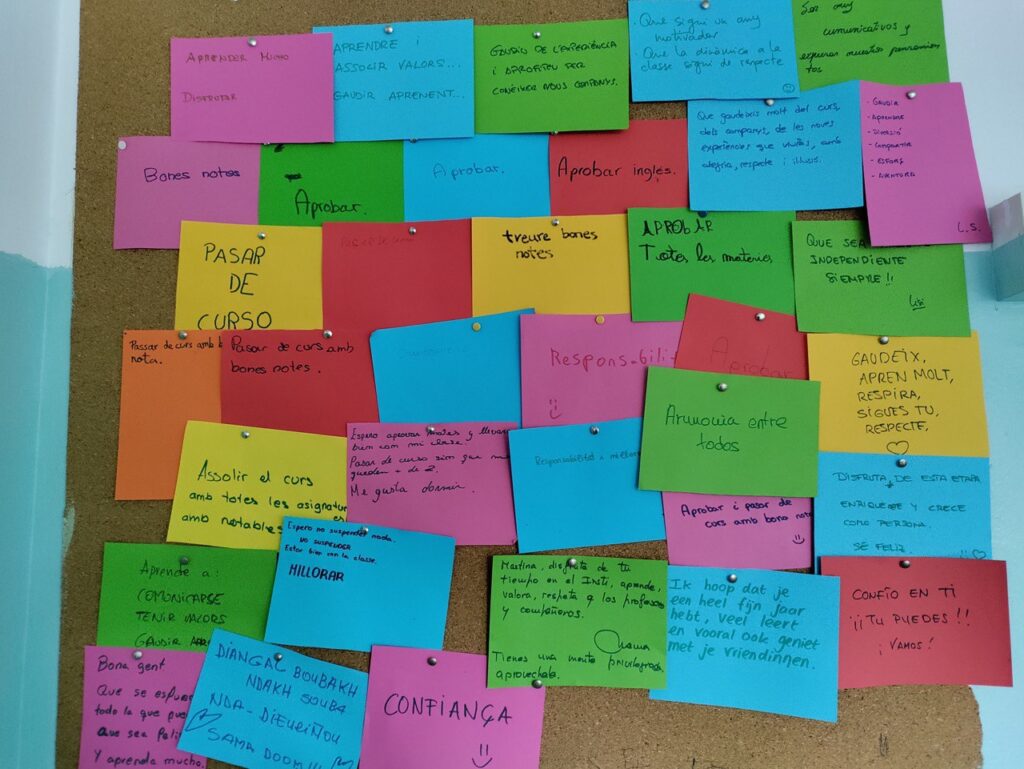 APRENDER MUCHO
DISFRUTAR
APRENDRE i
ASSOLIR VALORS...
GAUDIR APRENENT...
GAUDIU DE L'EXPERIÈNCIA
i APROFITEU PER
CONÈIXER NOUS COMPANYS.
- Que sigui un any
motivador
- Que la dinàmica a la
classe sigui de respecte
Ser muy
comunicativos y
expresar nuestros pensamien
tos
Bones notes
Aprobar.
Aprobar.
Aprobar inglés.
Que gaudeixis molt del curs,
dels companys, de les noves
experiències que viuràs, amb
alegria, respecte i il·lusió.
- GAUDIR
- APRENDRE
- DIVERSIÓ
- COMPARTIR
- ESFORÇ
- AVENTURA
L.S.
PASAR
DE
CURSO
PASAR DE CURSO
treure bones
notes
APROBAR
Totes les materies
QUE SEA
INDEPENDIENTE
SIEMPRE!!
Passar de curs amb b
nota.
Passar de curs amb
bones notes.
Responsabilit
Aprobar
GAUDEIX,
APREN MOLT,
RESPIRA,
SIGUES TU,
RESPECTE,
Armonia entre
todos
Assolir el curs
amb totes les asignatur
es
amb notables
Espero aprovar notes y llevarme
bien com mi clase.
Pasar de curso sim que me
queden + de 2.
Me gusta dormir.
Responsabilitat i millorar
Aprobar i pasar de
curs amb bona nota
DISFRUTA DE ESTA ETAPA
ENRIQUECETE Y CRECE
COMO PERSONA.
SÉ FELIZ.
Espero no suspender nada.
NO SUSPENDER
Estar bien con la classe.
MILLORAR
Aprende a:
COMUNICARSE
TENIR VALORS
GAUDIR APRE
Martina, disfruta de tu
tiempo en el Insti, aprende,
valora, respeta a los profesores
y compañeros.
Tienes una mente privilegiada
aprovechala.
Ik hoop dat je
een heel fijn jaar
hebt, veel leert
en vooral ook geniet
met je vriendinnen.
CONFÍO EN TI
¡¡TU PUEDES!!
¡VAMOS!
Bona gent
Que se esfuerc
todo lo que pue
Que sea feli
Y aprenda mucho.
DIANGAL BOUBAKH
NDAKH SOUBA
NDA-DIEURIÑOU
SAMA DOOM!!!
CONFIANÇA